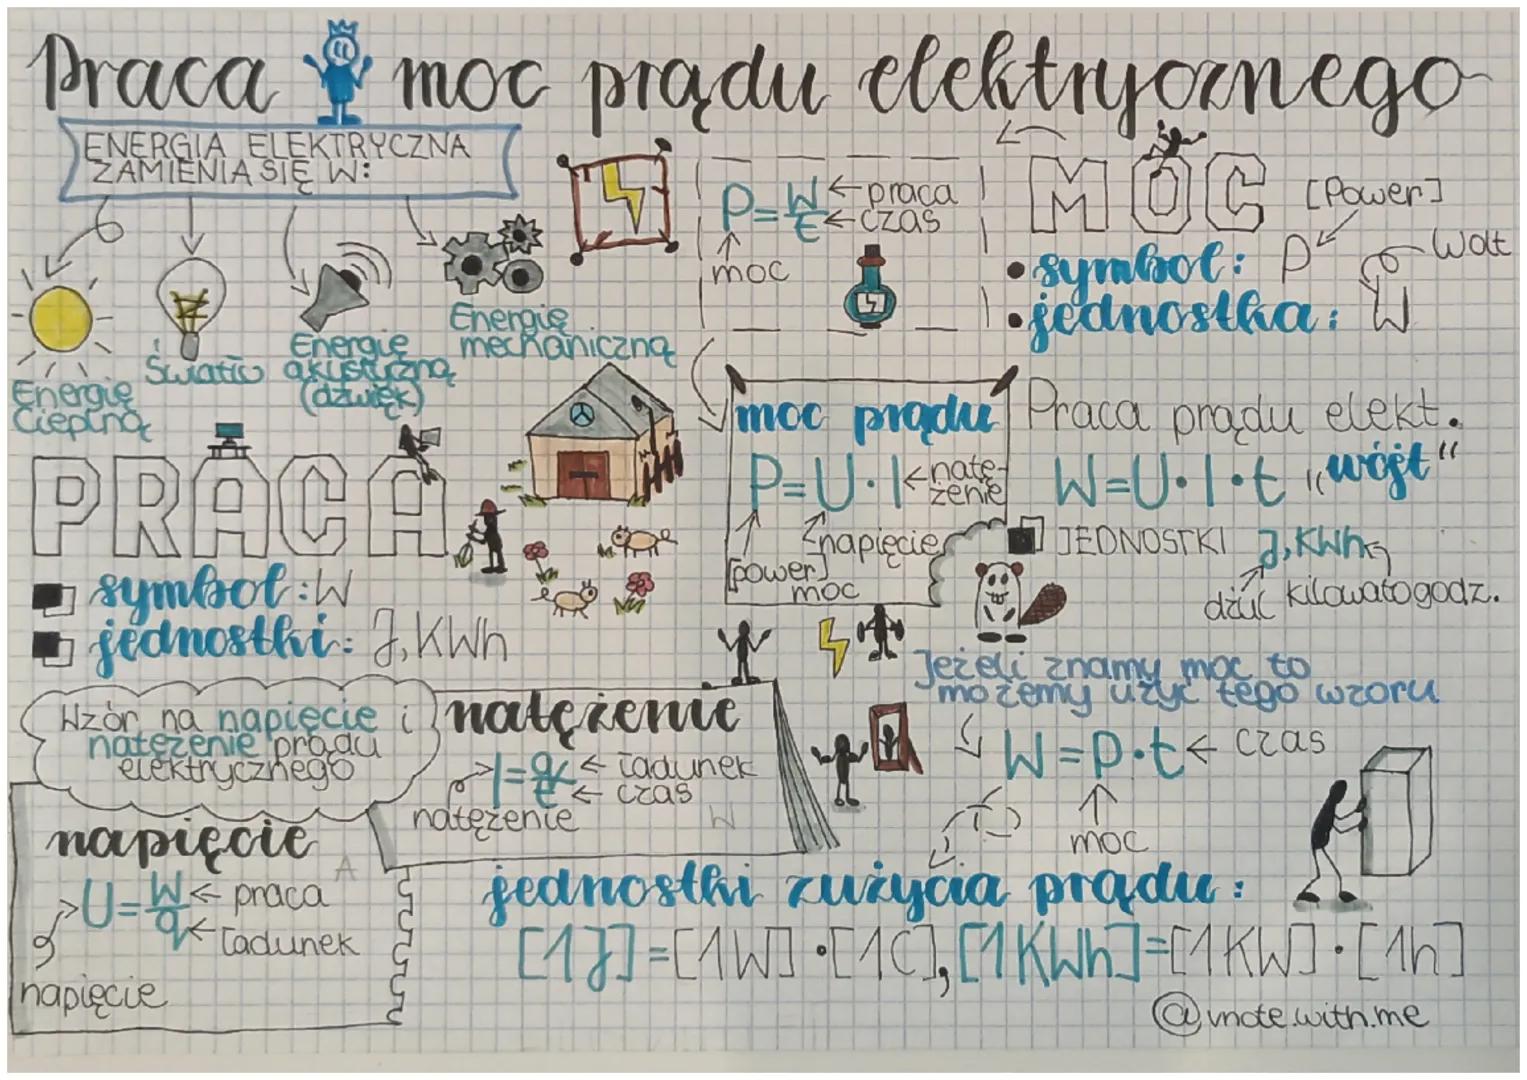 Praca i moc prądu elektrycznego
ENERGIA ELEKTRYCZNA
ZAMIENIA SIĘ W:
Energię
Cieplną
Światło
Energię
akustyczną
(dźwięk)
Energię
mechaniczną
P=W/t
praca
czas
moc
MOC [Power]
• symbol: P
• jednostka: W
Wat
PRACA
symbol: W
jednostki: J, KWh
moc prądu
P=U·I
natę-
żenie
napięcie
[power]
moc
Praca prądu elekt.
W=U·I·t „wójt“
JEDNOSTKI J, KWh
dżul kilowatogodz.
Jeżeli znamy moc to
możemy użyć tego wzoru
W=P·t
czas
moc
Wzór na napięcie i
natężenie prądu
elektrycznego
natężenie
I=q/t
ładunek
czas
natężenie
W
napięcie
A
U=W/q
praca
ładunek
napięcie
jednostki zużycia prądu:
[1J]=[1W]·[1C], [1KWh]=[1KW]·[1h]
@vnote.with.me